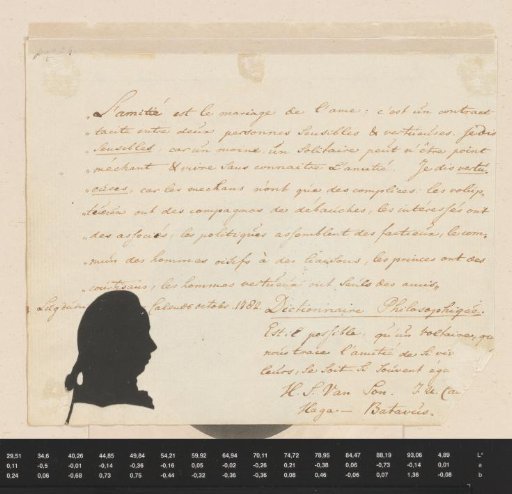 L'amitié est le mariage de l'ame; c'est un contract
tacite entre deux personnes sensibles & vertueuses. Je dis
sensibles, car un moine, un solitaire peut n'être point
méchant & vivre sans connaitre l'amitié. Je dis vertu
euses, car les mechans n'ont que des complices. les volup
tueux ont des compagnons de débauches, les intéressés ont
des associés, les politiques assemblent des factieux, le com-
mun des hommes oisifs a des liaisons, les princes ont des
courtisans, les hommes vertueux ont seuls des amis.
Calend octobr. 1782 Dictionnaire Philosophique.
Est-il possible qu'un Voltaire, qui
nous trace l'amitié de si vi
leurs, se soit si souvent
H. S. Van Son.
Haga- Batavus.
29,51 34,6 40,26 44,85 49,84 54,21 59,92 64,94 70,11 74,72 78,95 84,47 88,19 93,06 4,89 L*
0,11 -0,5 -0,01 -0,14 -0,36 -0,16 0,05 -0,02 -0,26 0,21 -0,38 0,06 -0,73 -0,14 0,01 a
0,24 0,06 -0,68 0,73 0,75 -0,44 -0,32 -0,36 -0,36 0,08 0,46 -0,06 0,07 1,36 -0,68 b